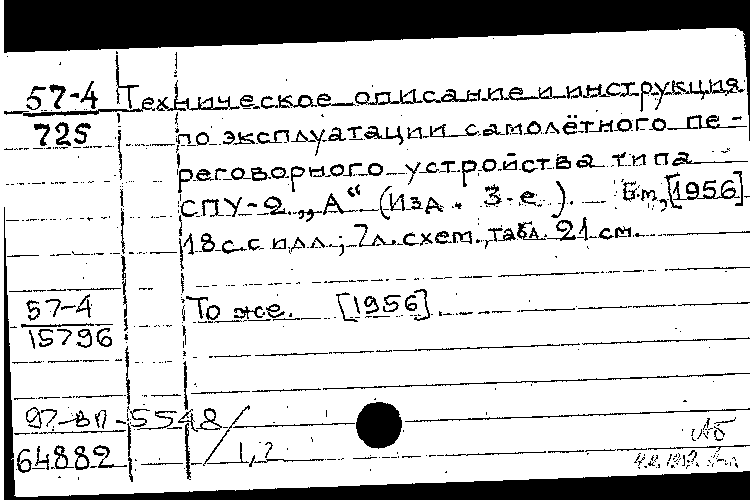 57-4 Техническое описание и инструкция
725 по эксплуатации самолётного пе-
реговорного устройства типа
СПУ-2 „А“ (Изд. 3-е). Б.м., [1956]
18 с. с илл.; 7 л. схем., табл. 21 см.
57-4 То же. [1956]
15796
97-ВП-5548/1,2
64882
АБ